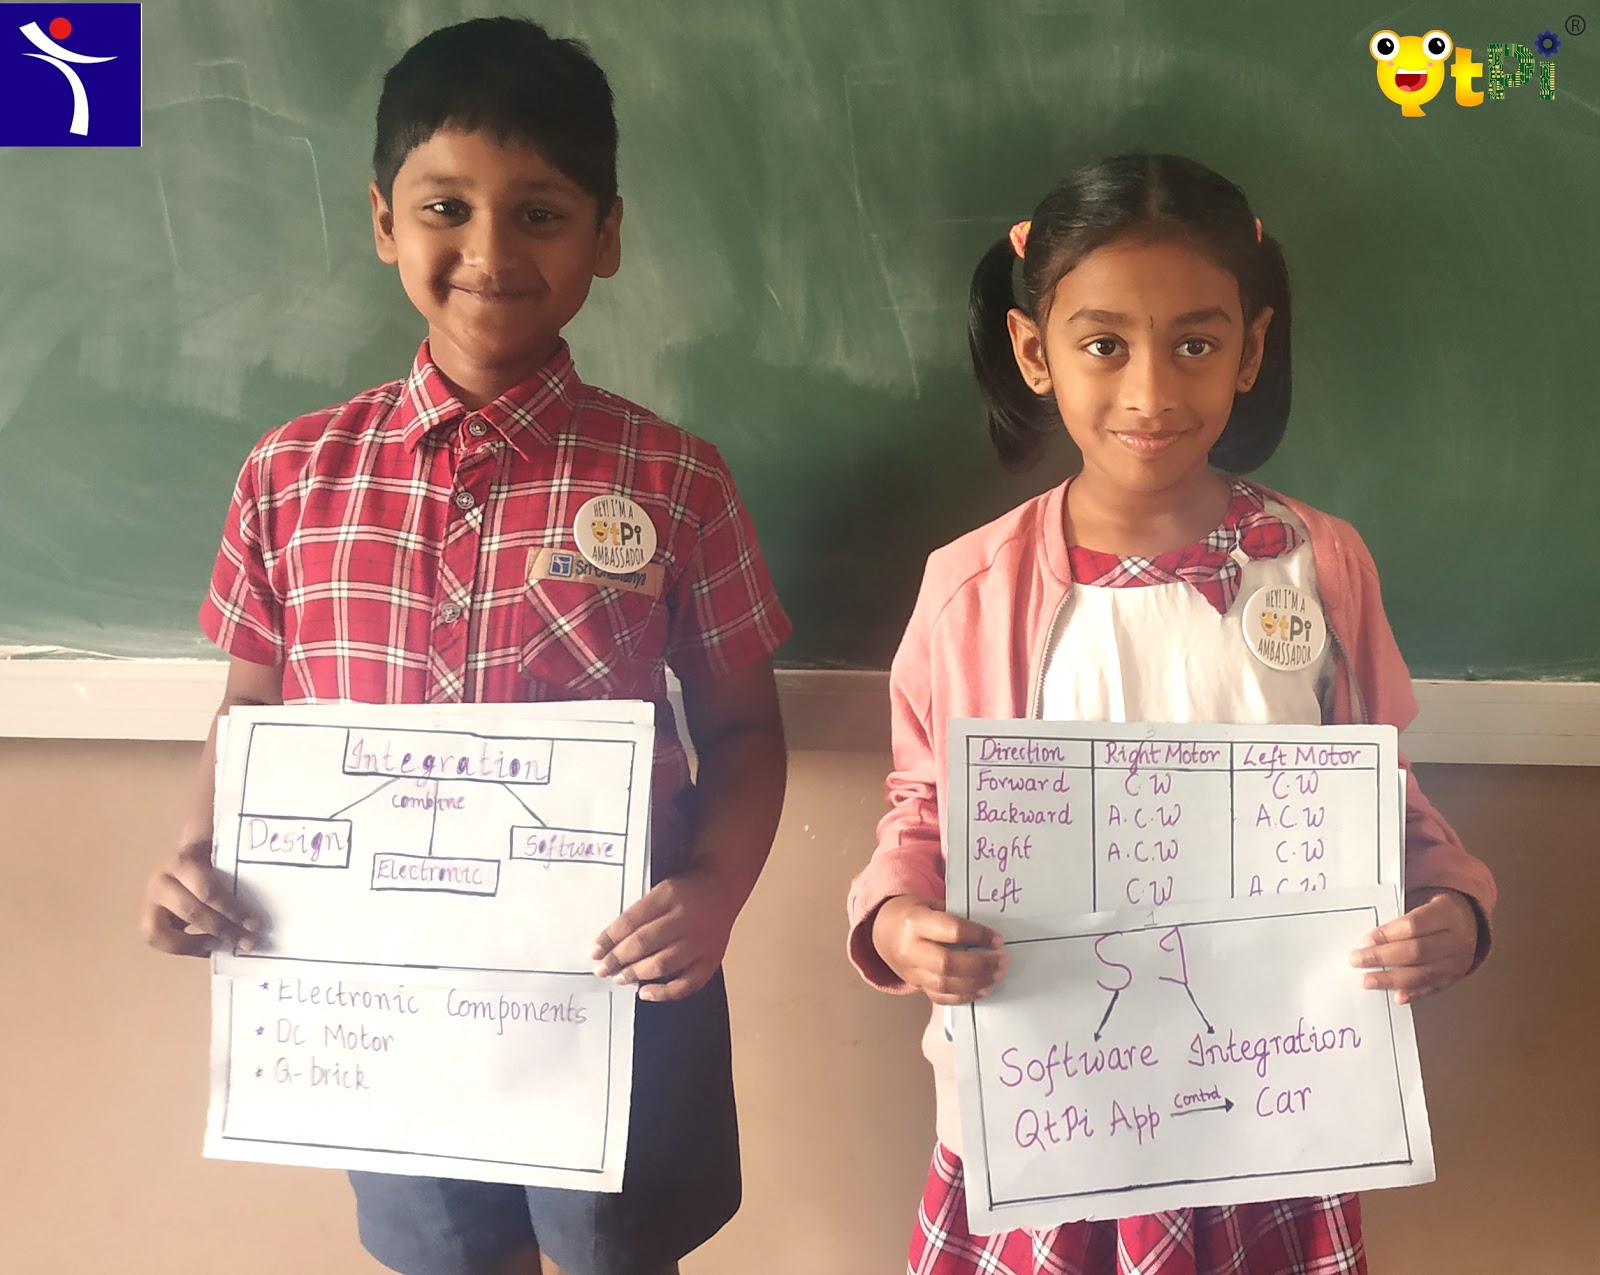 QtPi ®
HEY! I'M A
QtPi
AMBASSADOR
Sri
HEY! I'M A
QtPi
AMBASSADOR
Integration
combine
Design
Electronic
Software
* Electronic Components
* DC Motor
* Q-brick
3
Direction Right Motor Left Motor
Forward C.W C.W
Backward A.C.W A.C.W
Right A.C.W C.W
Left C.W A.C.W
1
S I
Software Integration
QtPi App control Car